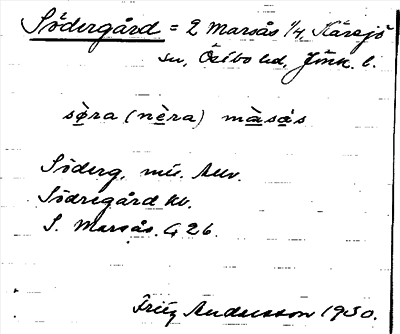 Södergård = 2 Marsås 1/4, Kärsjö
sn, Östbo hd, Jönk. l.
sø̀ra (nèra) màsås
Söderg. mis. Allv.
Södregård kv.
S. Marsås. G 26.
Fritz Andersson 1930.